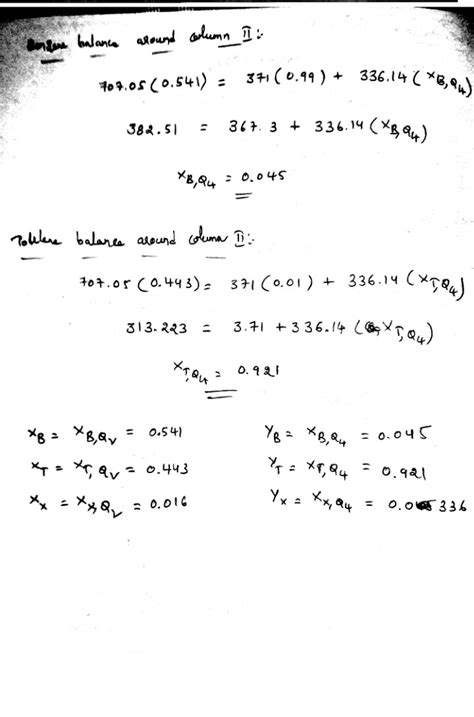 Benzene balance around column II :-
707.05 (0.541) = 371 (0.99) + 336.14 (x_B,Q4)
382.51 = 367.3 + 336.14 (x_B,Q4)
x_B,Q4 = 0.045
Toluene balance around column II :-
707.05 (0.443) = 371 (0.01) + 336.14 (x_T,Q4)
313.223 = 3.71 + 336.14 (x_T,Q4)
x_T,Q4 = 0.921
x_B = x_B,Qv = 0.541 y_B = x_B,Q4 = 0.045
x_T = x_T,Qv = 0.443 y_T = x_T,Q4 = 0.921
x_x = x_x,Qv = 0.016 y_x = x_x,Q4 = 0.0336